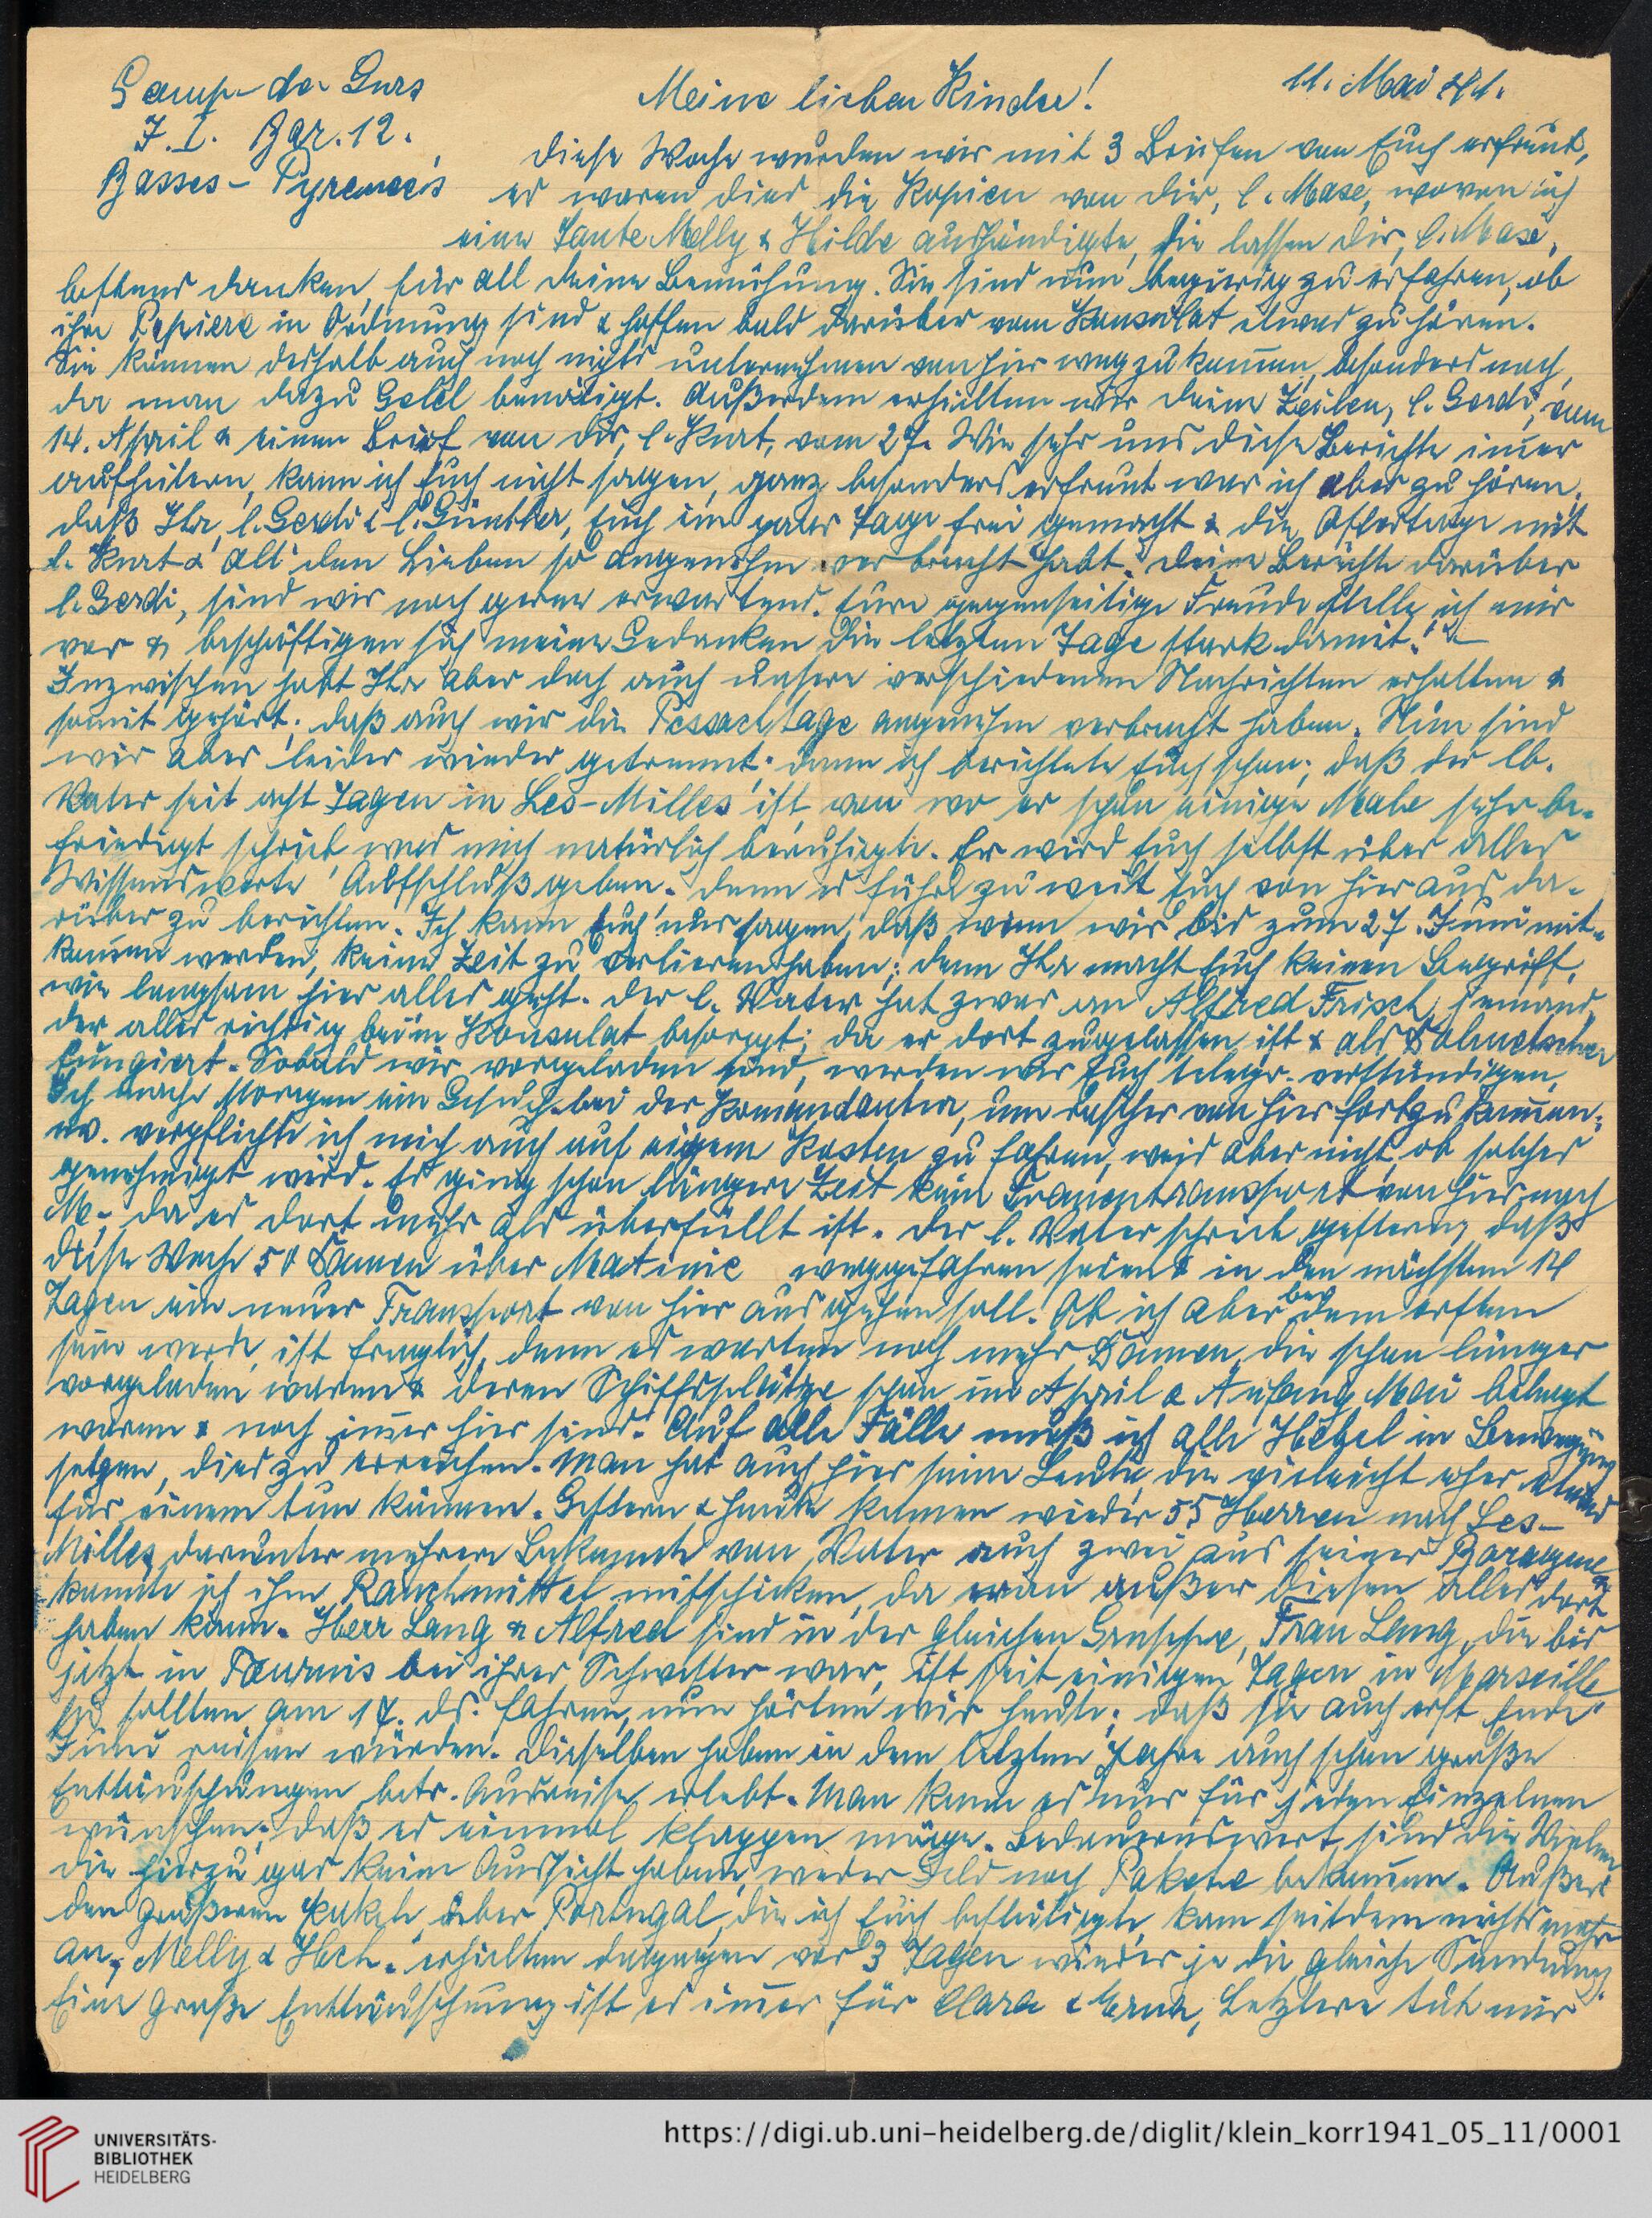 Camp de Gurs
J. I. Bar. 12.
Basses-Pyrenees
11. Mai 41.
Meine lieben Kinder!
diese Woche wurden wir mit 3 Briefen von Euch erfreut,
es waren dies die Kopien von Dir, l. Mase, wovon ich
eine Tante Melly & Hilde aushändigte, sie lassen Dir, l. Mase,
bestens danken, für all Deine Bemühung. Sie sind nun begierig zu erfahren, ob
ihre Papiere in Ordnung sind & hoffen bald darüber vom Konsulat etwas zu hören.
Sie können deshalb auch noch nichts unternehmen von hier weg zu kommen, besonders noch,
da man dazu Geld benötigt. Außerdem erhielten wir Deine Zeilen, l. Gerdi, vom
14. April & einen Brief von Dir, l. Kurt, vom 27. Wie sehr uns diese Berichte immer
aufheitern, kann ich Euch nicht sagen, ganz besonders erfreut war ich aber zu hören,
daß Ihr, l. Gerdi & l. Günther, Euch ein paar Tage frei gemacht & die Ostertage mit
l. Kurt & all den Lieben so angenehm verbracht habt. Deine Berichte darüber
l. Gerdi, sind wir noch gerne erwartend. Eure gegenseitige Freude stelle ich mir
vor & beschäftigen sich meine Gedanken die letzten Tage stark damit.
Inzwischen habt Ihr aber doch auch unsere verschiedenen Nachrichten erhalten &
somit gehört, daß auch wir die Pessachtage angenehm verbracht haben. Nun sind
wir aber leider wieder getrennt; denn ich berichtete Euch schon, daß der lb.
Vater seit acht Tagen in Les-Milles ist, von wo er schon einige Male sehr be-
friedigt schrieb was mich natürlich beruhigte. Er wird Euch selbst über alles
Wissenswerte Aufschluß geben. denn es führt zu weit Euch von hier aus da-
rüber zu berichten. Ich kann Euch nur sagen, daß wenn wir bis zum 27. Juni mit-
kommen werden, keine Zeit zu verlieren haben; denn Ihr macht Euch keinen Begriff,
wie langsam hier alles geht. Der l. Vater hat zwar an Alfred Frisch jemand,
der alles richtig beim Konsulat besorgt; da er dort zugelassen ist & als Dolmetscher
fungiert. Sobald wir vorgeladen sind, werden wir Euch telegr. verständigen,
Ich mache Morgen ein Gesuch bei der Komandantur, um rascher von hier fortzukommen;
ev. verpflichte ich mich auch auf eigene Kosten zu fahren, weis aber nicht, ob solches
genehmigt wird. Es ging schon längere Zeit kein Frauentransport von hier nach
M. da es dort mehr als überfüllt ist. Der l. Vater schrieb gestern, daß
diese Woche 50 Damen über Matinic weggefahren seien & in den nächsten 14
Tagen ein neuer Transport von hier aus gehen soll. Ob ich aber bei dem ersten
sein werde, ist fraglich, denn es warten noch mehr Damen, die schon länger
vorgeladen waren & deren Schiffsplätze schon im April & Anfang Mai belegt
waren & noch immer hier sind. Auf alle Fälle muß ich alle Hebel in Bewegung
setzen, dies zu erreichen. Man hat auch hier seine Leute, die vielleicht eher etwas
für einem tun können. Gestern & heute kamen wieder 55 Herren nach Les-
Milles, darunter mehrere Bekannte von Vater auch zwei aus seiner Baraque
konnte ich ihm Rauchmittel mitschicken, da man außer diesen alles dort
haben kann. Herr Lang & Alfred sind in der gleichen Gruppe, Frau Lang, die bis
jetzt in bei ihrer Schwester war, ist seit einigen Tagen in Marseille.
sie sollten am 17. ds. fahren, nun hörten wir heute, daß sie auch erst Ende
Juni reisen würden. Dieselben haben in dem letzten Jahre auch schon große
Enttäuschungen betr. Ausreise erlebt. Man kann es nur für jeden Einzelnen
wünschen, daß es einmal klappen möge. Bedauernswert sind die Vielen
die hierzu gar keine Aussicht haben, weder Geld noch Pakete bekommen. Außer
den größeren Paketen über Portugal, die ich Euch bestätigte, kam seitdem nichts mehr
an, Melly & Hch. erhielten dagegen vor 3 Tagen wieder je die gleiche Sendung.
Eine große Enttäuschung ist es immer für Clara & Erna, Letztere tut mir
UNIVERSITÄTS-
BIBLIOTHEK
HEIDELBERG
https://digi.ub.uni-heidelberg.de/diglit/klein_korr1941_05_11/0001